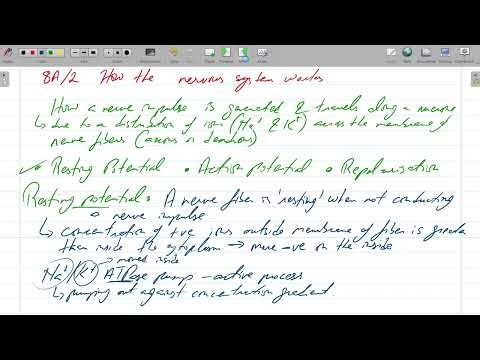 8A/2 How the nervous system works
How a nerve impulse is generated & travels along a neurone
↳ due to a distribution of ions (Na⁺ & K⁺) across the membrane of
nerve fibers (axons or dendrons)
✓ • Resting Potential • Action potential • Repolarisation
Resting potential • A nerve fiber is 'resting' when not conducting
a nerve impulse
↳ concentration of +ve ions outside membrane of fiber is greater
than inside the cytoplasm → more -ve on the inside
→ moved inside
Na⁺/K⁺ ATPase pump - active process
↳ pumping out against concentration gradient.